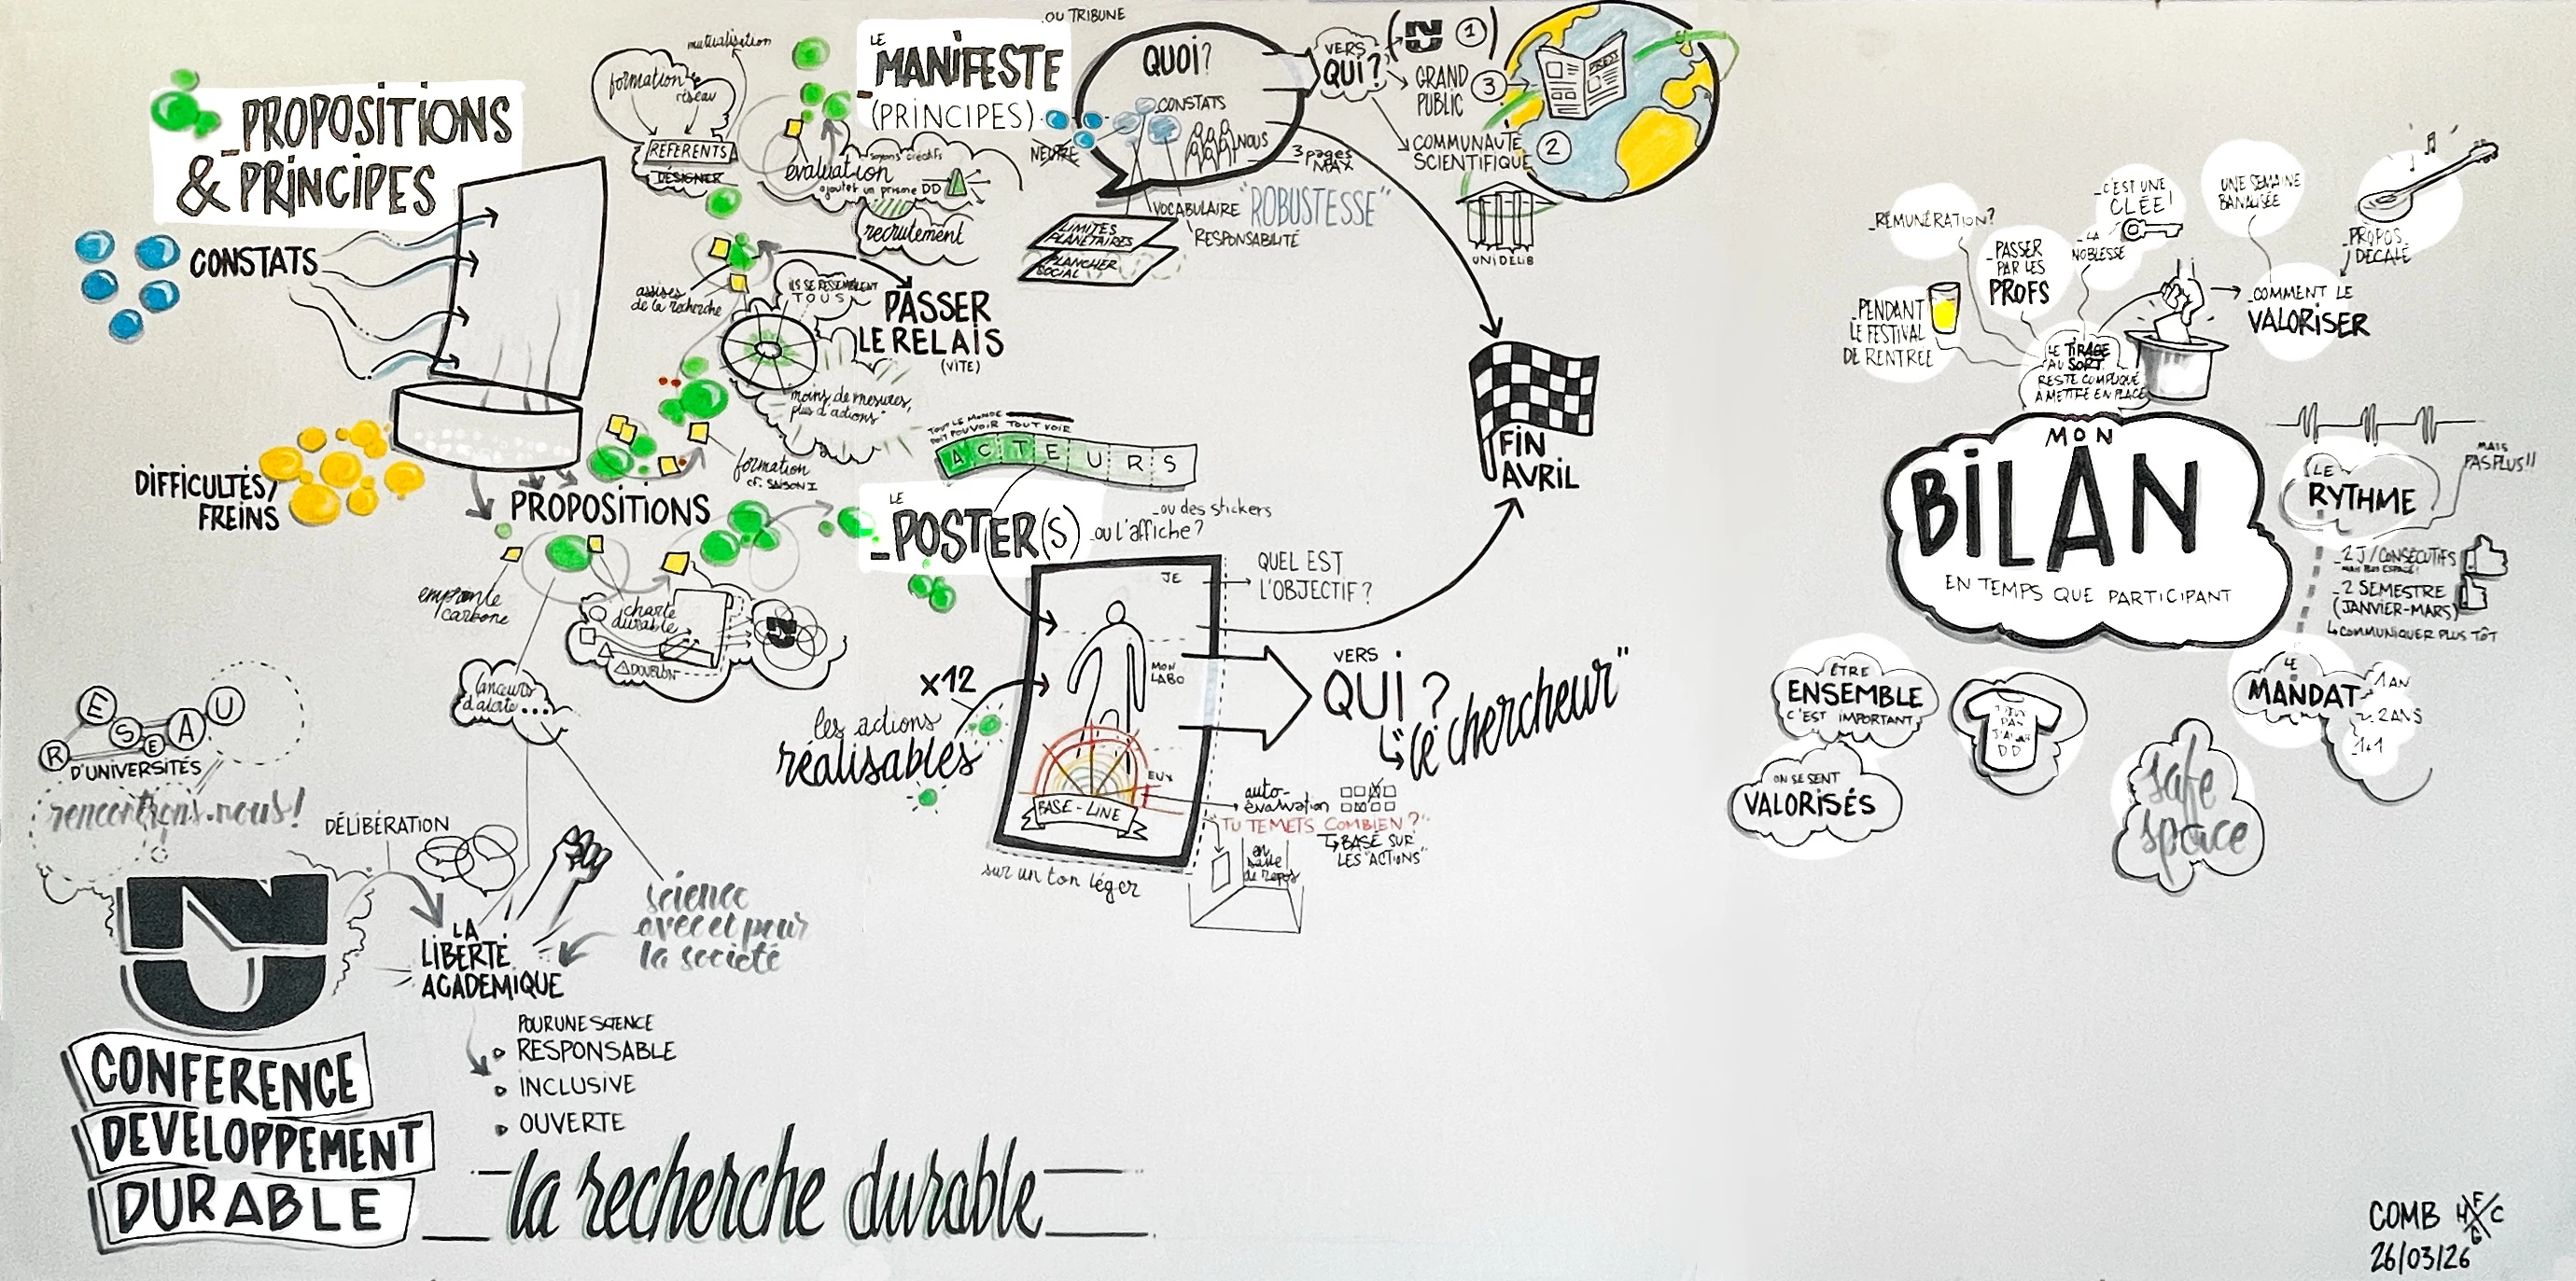 _PROPOSITIONS
& PRINCIPES
CONSTATS
DIFFICULTÉS/
FREINS
PROPOSITIONS
empreinte
carbone
charte
durable
⚠DOUBLON
lanceurs
d'alerte...
formation
cf. SAISON I
assises
de la recherche
mutualisation
formation
réseau
RÉFÉRENTS
DÉSIGNER
soyons créatifs
évaluation
ajouter un prisme DD
recrutement
ILS SE RESSEMBLENT
TOUS
PASSER
LE RELAIS
(VITE)
moins de mesures,
plus d'actions"
_OU TRIBUNE
LE
_MANIFESTE
(PRINCIPES)
NEUTRE
QUOI?
_CONSTATS
NOUS
3 pages
MAX
VOCABULAIRE "ROBUSTESSE"
RESPONSABILITÉ
LIMITES
PLANÉTAIRES
PLANCHER
SOCIAL
VERS
QUI?
1
GRAND
PUBLIC
3
COMMUNAUTÉ
SCIENTIFIQUE
2
PRESS
UNIDELIB
FIN
AVRIL
TOUT LE MONDE
DOIT POUVOIR TOUT VOIR
ACTEURS
LE
_POSTER(S)
_ou l'affiche?
_ou des stickers
JE
QUEL EST
L'OBJECTIF?
MON
LABO
EUX
BASE-LINE
x12
les actions
réalisables
VERS
QUI?
"le chercheur"
auto-
évaluation
"TU TE METS COMBIEN?"
BASÉ SUR
LES "ACTIONS"
en
salle
de repos
sur un ton léger
RESEAU
D'UNIVERSITÉS
rencontrons-nous!
DÉLIBÉRATION
LA
LIBERTÉ
ACADEMIQUE
science
avec et pour
la société
POUR UNE SCIENCE
RESPONSABLE
INCLUSIVE
OUVERTE
CONFERENCE
DEVELOPPEMENT
DURABLE
la recherche durable
_RÉMUNÉRATION?
_PENDANT
LE FESTIVAL
DE RENTRÉE
_PASSER
PAR LES
PROFS
_LA
NOBLESSE
_C'EST UNE
CLÉE!
UNE SEMAINE
BANALISÉE
PROPOS
DÉCALÉ
_COMMENT LE
VALORISER
LE TIRAGE
AU SORT
RESTE COMPLIQUÉ
A METTRE EN PLACE
MON
BILAN
EN TEMPS QUE PARTICIPANT
LE
RYTHME
MAIS
PAS PLUS!!
_2 J/CONSÉCUTIFS
_2 SEMESTRE
(JANVIER-MARS)
COMMUNIQUER PLUS TÔT
LE
MANDAT
1 AN
2 ANS
1+1
ÊTRE
ENSEMBLE
C'EST IMPORTANT
ON SE SENT
VALORISÉS
safe
space
COMB
26/03/26